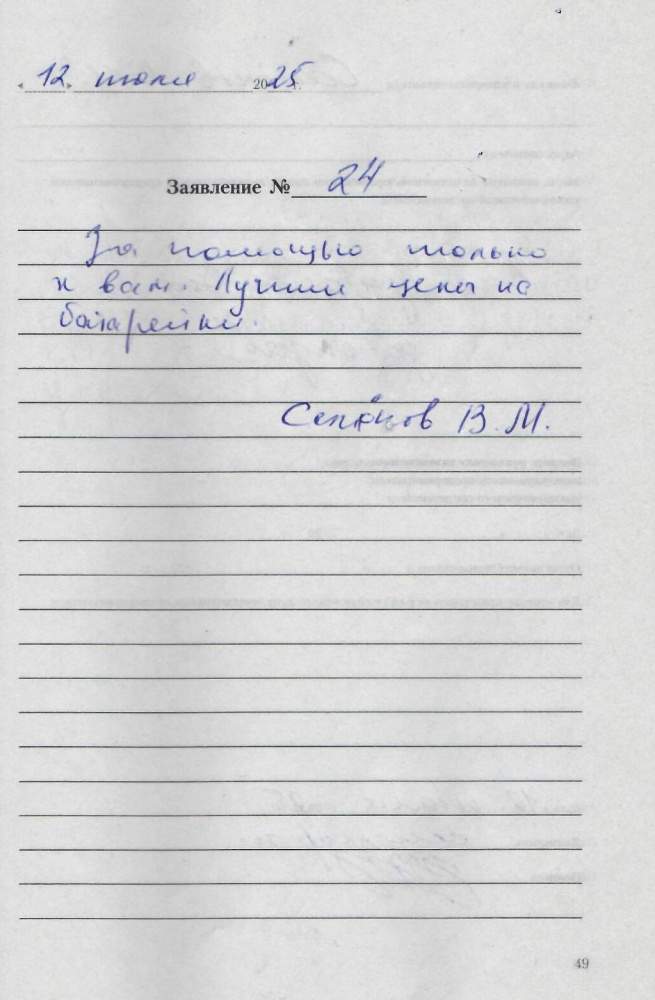 "12" июля 2025 г.
Заявление № 24
За помощью только
к вам. Лучшие цены на
батарейки.
В. М.
49